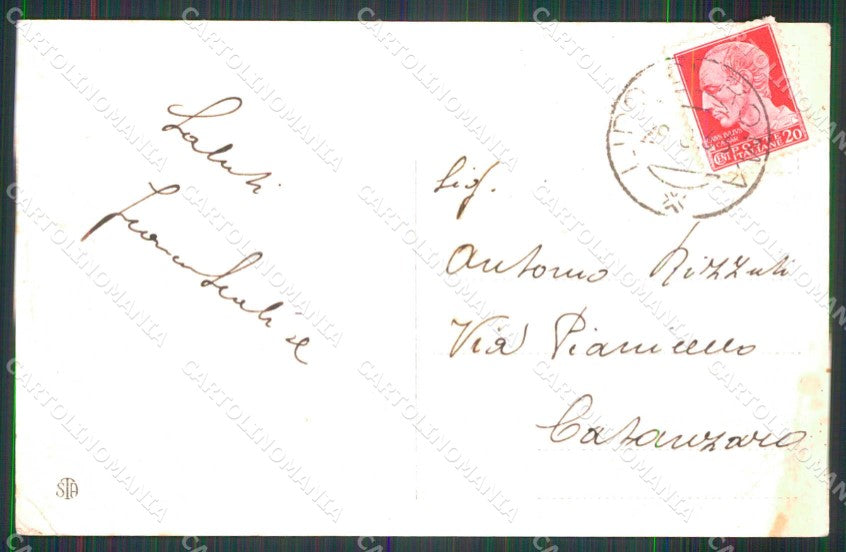 Saluti
Sig.
Antonio Rizzuti
Via Pianicello
Catanzaro
CAIVS IVLIVS
CAESAR
POSTE
ITALIANE
CENT 20
STA
CARTOLINOMANIA